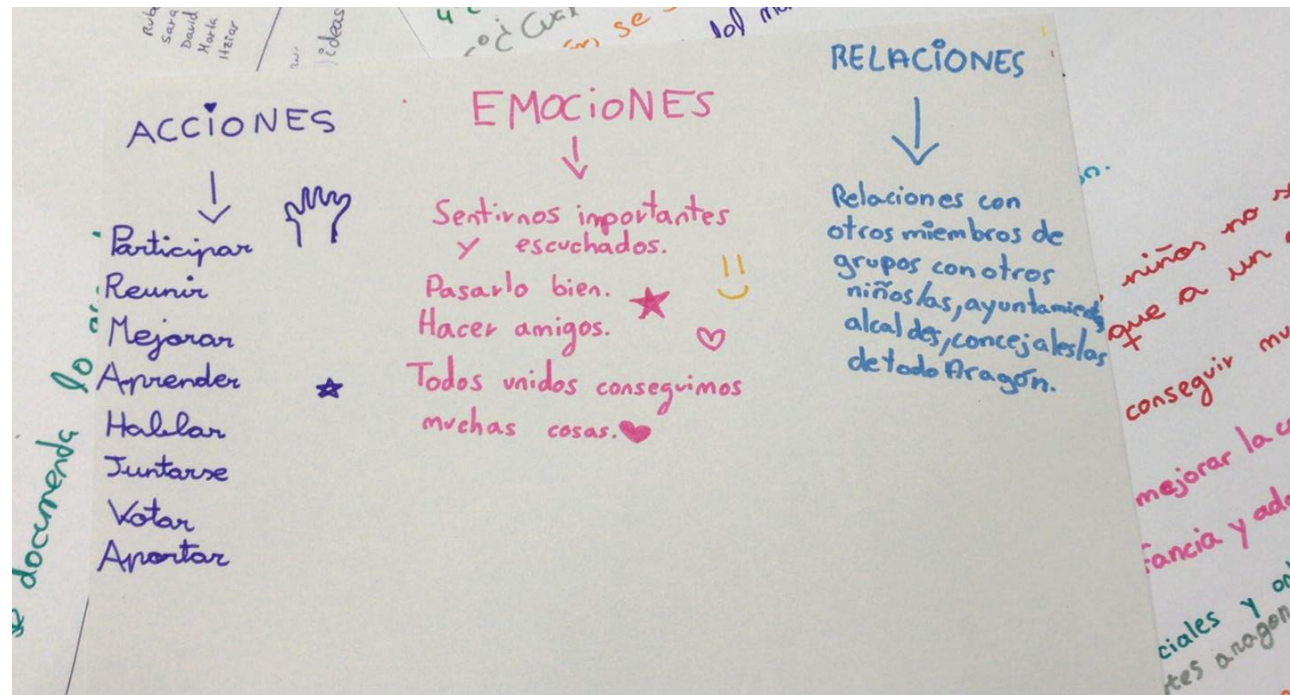 Sara
David
ideas
se
ACCIONES
Participar
Reunir
Mejorar
Aprender
Hablar
Juntarse
Votar
Aportar
EMOCIONES
Sentirnos importantes
y escuchados.
Pasarlo bien.
Hacer amigos.
Todos unidos conseguimos
muchas cosas.
RELACIONES
Relaciones con
otros miembros de
grupos con otros
niños/as, ayuntamientos
alcaldes, concejales/as
de todo Aragón.
se documenda lo
niños no
que a un
conseguir
mejorar la
y
y